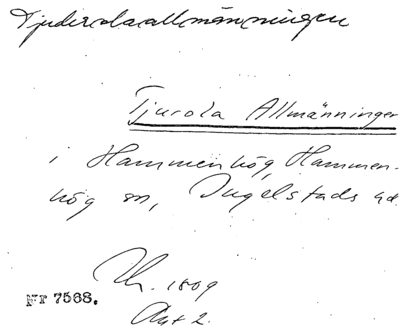 Tjuderolaallmänningen
Tjurola Allmänningen
i Hammenhög, Hammen-
hög sn, Ingelstads hd
Lh. 1809
Akt 2.
Nr 7568.